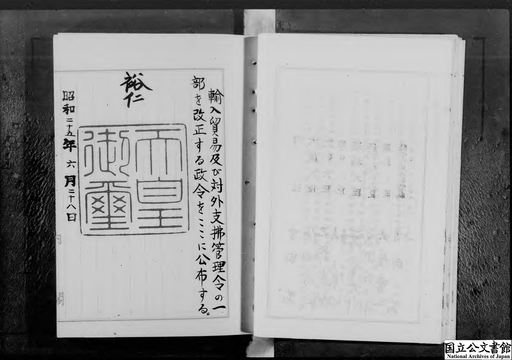 輸入貿易及び対外支拂管理令の一
部を改正する政令をここに公布する。
裕仁
天皇
御璽
昭和二十五年六月二十八日
国立公文書館
National Archives of Japan